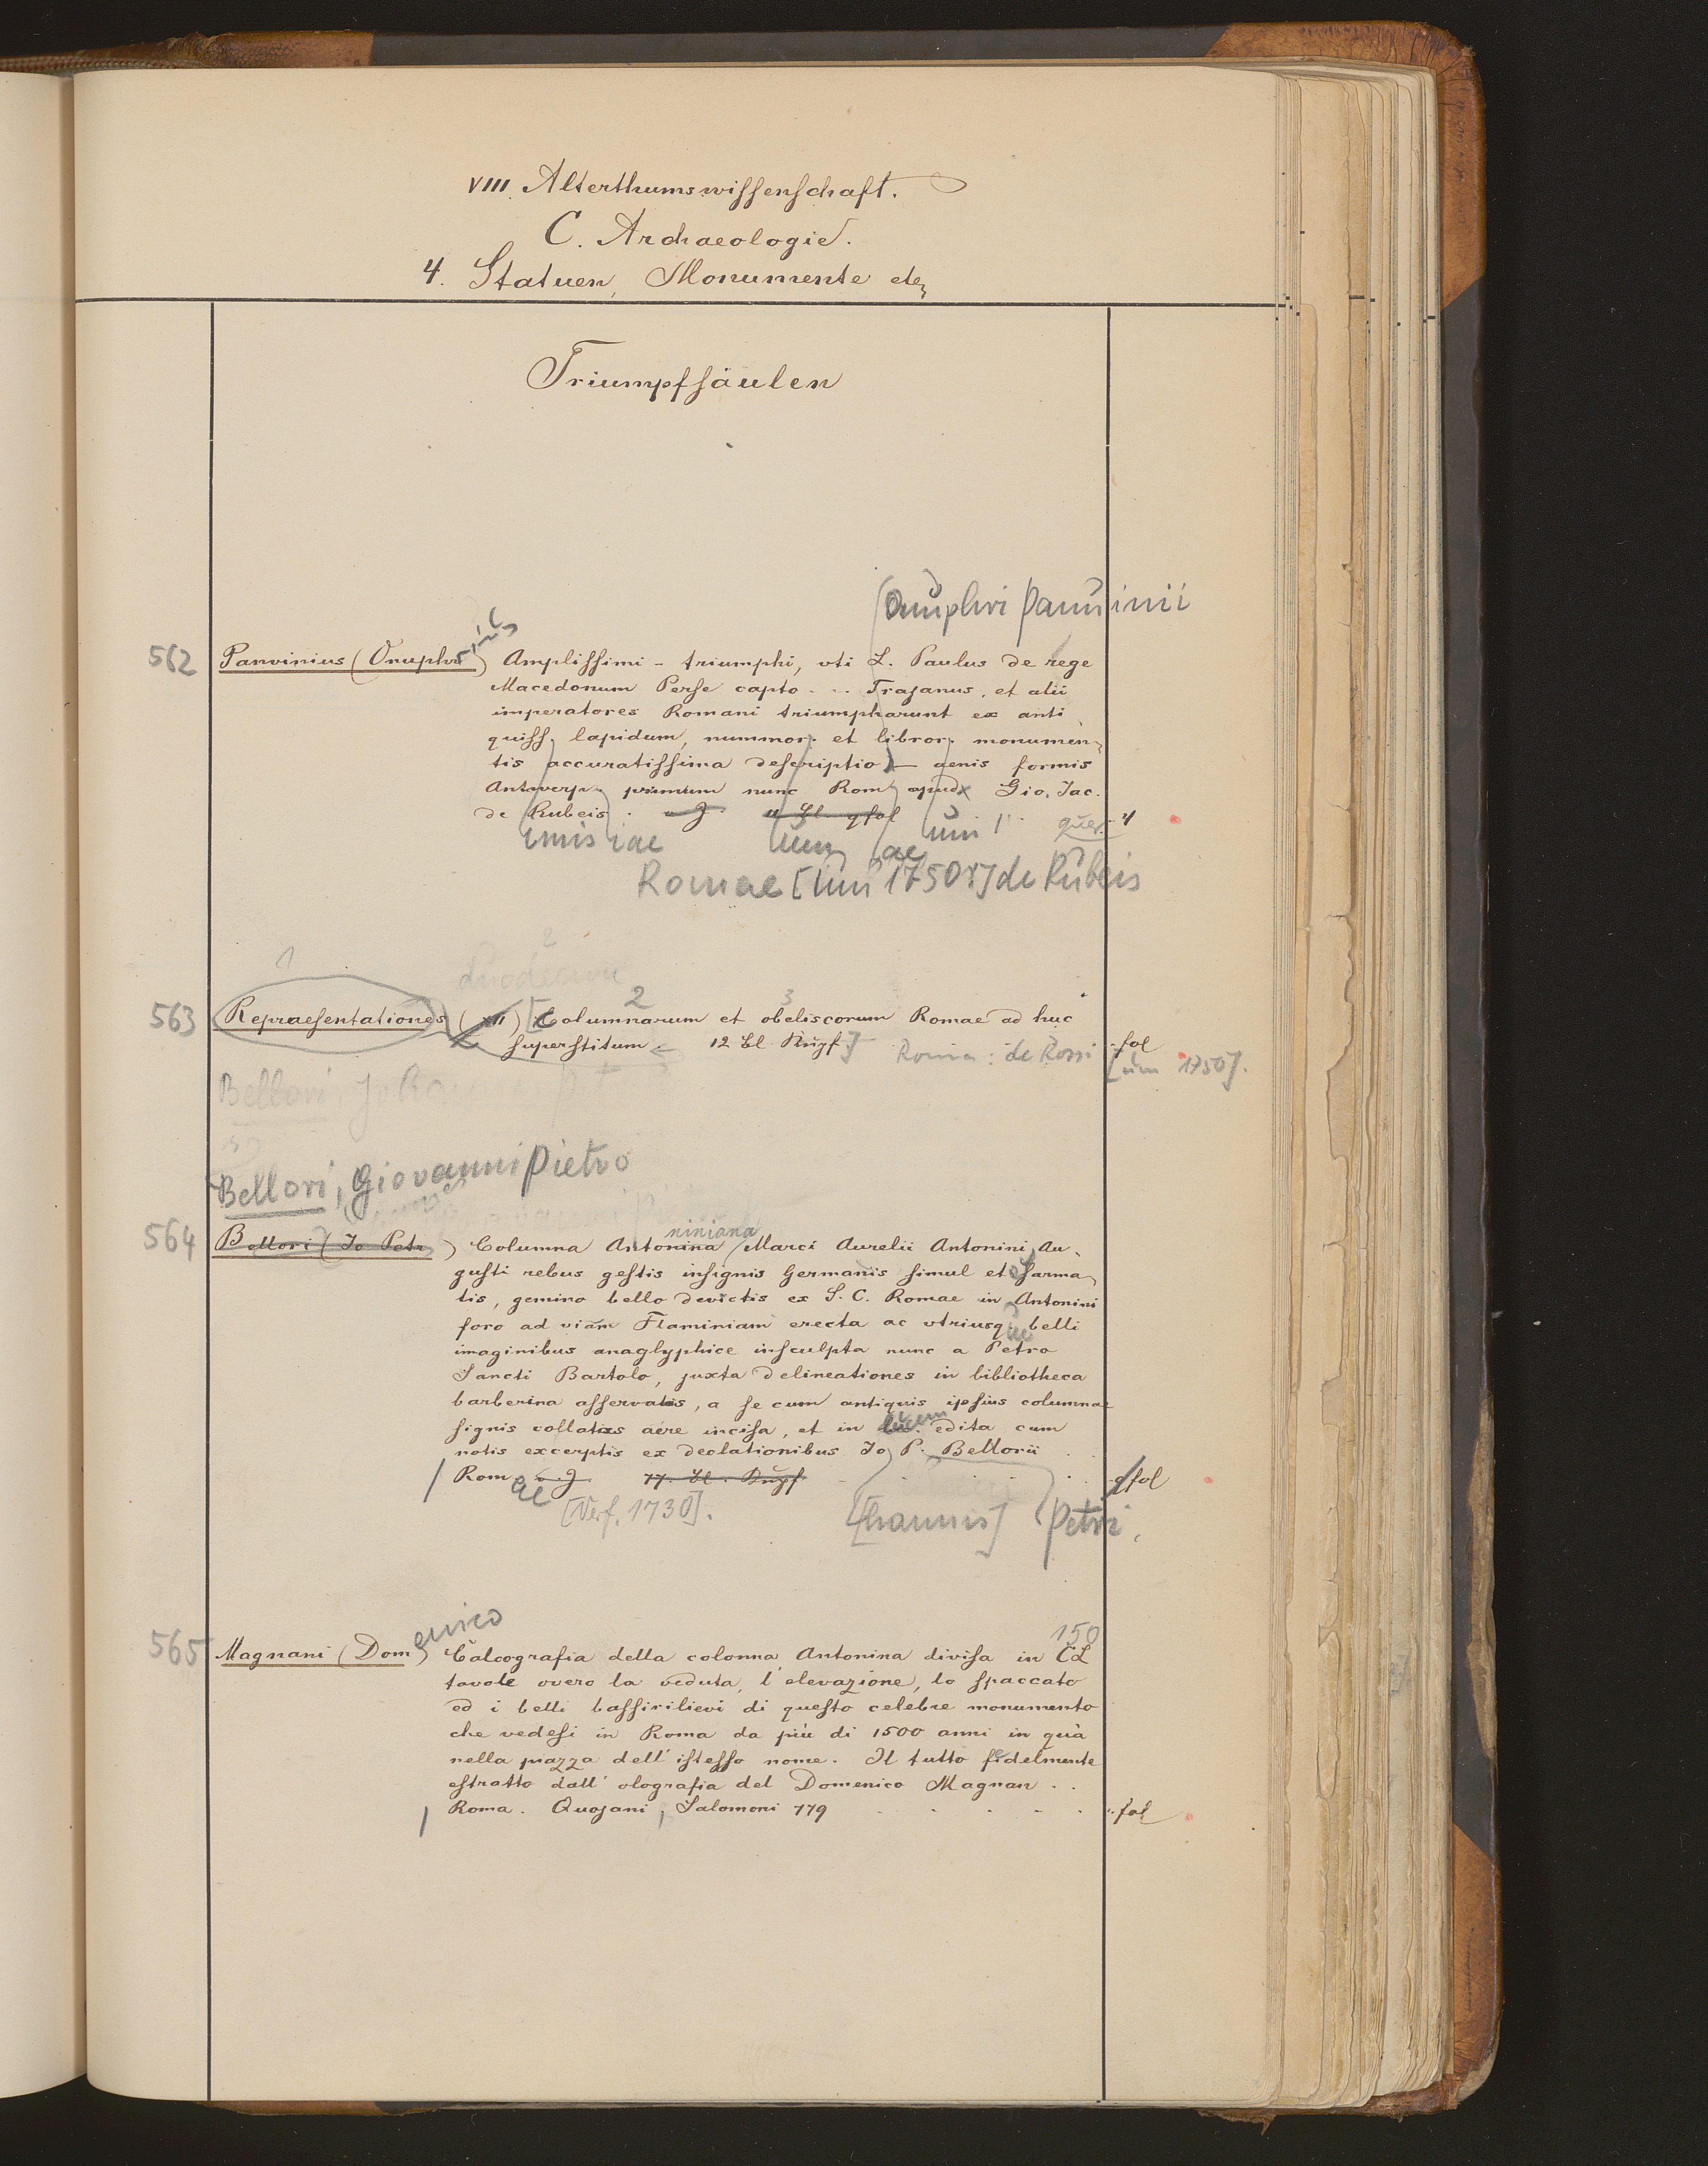 VIII. Alterthumswissenschaft.
C. Archaeologie.
4. Statuen, Monumente etc
Triumpfsäulen
(Onuphri Panuinii
562 Panvinius (Onuphr) Amplissimi - triumphi, vti L. Paulus de rege
Macedonum Perse capto . . . Trajanus, et alii
imperatores Romani triumpharunt ex anti
quiss. lapidum, nummor. et libror. monumen-
tis accuratissima descriptio - aenis formis
Antverp. primum nunc Rom apud Gio. Jac.
de Rubeis . quer. 4
imis iae um ae
Romae [um 1750?] de Rubeis
1 2
duodecim
2 3
563 Repraesentationes (XII) [Columnarum et obeliscorum Romae ad huc
superstitum 12 Bl. Kupf.] Roma: de Rossi fol
[um 1750].
Bellori, Joha
Bellori, Giovanni Pietro
niniana
564 Bellori (Jo Petr) Columna Antonina (Marci Aurelii Antonini Au-
gusti rebus gestis insignis Germanis simul et Sarma
tis, gemino bello devictis ex S. C. Romae in Antonini
foro ad viam Flaminiam erecta ac vtriusq belli
ue
imaginibus anaglyphice insculpta nunc a Petro
Sancti Bartolo, juxta delineationes in bibliotheca
barberina asservatis, a se cum antiquis ipsius columnae
signis collatas aere incisa, et in lucem edita cum
notis excerptis ex declationibus Jo P. Bellorii
Rom 77. Bl. Kupf qfol
ae [Verf. 1730]. [hannis] Petri.
enico 150
565 Magnani (Dom) Calcografia della colonna Antonina divisa in CL
tavole overo la veduta, l'elevazione, lo spaccato
ed i belli bassirilievi di questo celebre monumento
che vedesi in Roma da più di 1500 anni in quà
nella piazza dell' istesso nome. Il tutto fedelmente
estratto dall' olografia del Domenico Magnan . .
Roma. Quojani, Salomoni 779 . . . . . fol